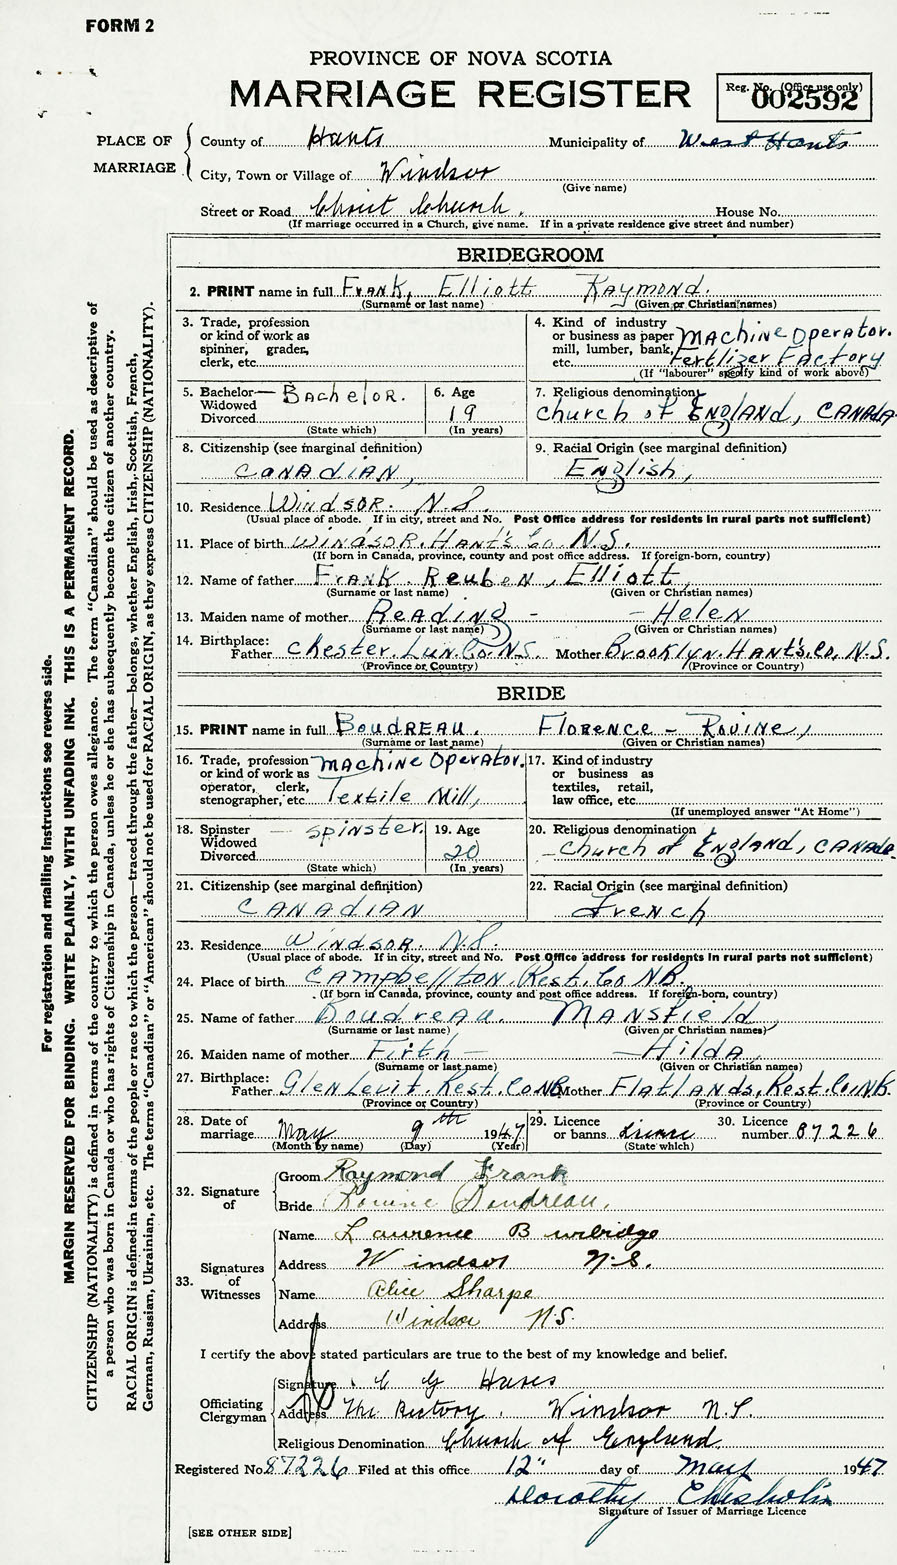 FORM 2
PROVINCE OF NOVA SCOTIA
MARRIAGE REGISTER
Reg. No. (Office use only)
002592
PLACE OF MARRIAGE
County of Hants Municipality of West Hants
City, Town or Village of Windsor
(Give name)
Street or Road Christ Church. House No.
(If marriage occurred in a Church, give name. If in a private residence give street and number)
BRIDEGROOM
2. PRINT name in full Frank, Elliott Raymond.
(Surname or last name) (Given or Christian names)
3. Trade, profession or kind of work as spinner, grader, clerk, etc.
4. Kind of industry or business as paper mill, lumber, bank, etc. Machine Operator. Fertlizer Factory
(If "labourer" specify kind of work above)
5. Bachelor Widowed Divorced — Bachelor.
(State which)
6. Age 19
(In years)
7. Religious denomination Church of England, Canada
8. Citizenship (see marginal definition) Canadian,
9. Racial Origin (see marginal definition) English,
10. Residence Windsor. N.S.
(Usual place of abode. If in city, street and No. Post Office address for residents in rural parts not sufficient)
11. Place of birth Windsor. Hant's Co. N.S.
(If born in Canada, province, county and post office address. If foreign-born, country)
12. Name of father Frank. Reuben, Elliott,
(Surname or last name) (Given or Christian names)
13. Maiden name of mother Reading - - Helen
(Surname or last name) (Given or Christian names)
14. Birthplace: Father Chester. Lun. Co. N.S. Mother Brooklyn. Hant's. Co, N.S.
(Province or Country) (Province or Country)
BRIDE
15. PRINT name in full Boudreau. Florence - Rovine,
(Surname or last name) (Given or Christian names)
16. Trade, profession or kind of work as operator, clerk, stenographer, etc. Machine Operator. Textile Mill,
17. Kind of industry or business as textiles, retail, law office, etc.
(If unemployed answer "At Home")
18. Spinster Widowed Divorced — Spinster.
(State which)
19. Age 20
(In years)
20. Religious denomination Church of England, Canada.
21. Citizenship (see marginal definition) Canadian
22. Racial Origin (see marginal definition) French
23. Residence Windsor. N.S.
(Usual place of abode. If in city, street and No. Post Office address for residents in rural parts not sufficient)
24. Place of birth Campbellton, Rest. Co NB.
(If born in Canada, province, county and post office address. If foreign-born, country)
25. Name of father Boudreau. Mansfield,
(Surname or last name) (Given or Christian names)
26. Maiden name of mother Firth — — Hilda,
(Surname or last name) (Given or Christian names)
27. Birthplace: Father Glen Levit. Rest. Co NB Mother Flatlands, Rest. Co. N.B.
(Province or Country) (Province or Country)
28. Date of marriage May 9th 1947
(Month by name) (Day) (Year)
29. Licence or banns Licence
(State which)
30. Licence number 87226
32. Signature of
Groom Raymond Frank
Bride Rovine Boudreau.
33. Signatures of Witnesses
Name Laurence
Address Windsor N.S.
Name Alice Sharpe
Address Windsor N.S.
I certify the above stated particulars are true to the best of my knowledge and belief.
Officiating Clergyman
Signature C G
Address The Rectory. Windsor N.S.
Religious Denomination Church of England.
Registered No. 87226 Filed at this office 12" day of May 1947
Dorothy Chisholm
Signature of Issuer of Marriage Licence
[SEE OTHER SIDE]
For registration and mailing instructions see reverse side.
MARGIN RESERVED FOR BINDING. WRITE PLAINLY, WITH UNFADING INK. THIS IS A PERMANENT RECORD.
CITIZENSHIP (NATIONALITY) is defined in terms of the country to which the person owes allegiance. The term "Canadian" should be used as descriptive of
a person who was born in Canada or who has rights of Citizenship in Canada, unless he or she has subsequently become the citizen of another country.
RACIAL ORIGIN is defined in terms of the people or race to which the person—traced through the father—belongs, whether English, Irish, Scottish, French,
German, Russian, Ukrainian, etc. The terms "Canadian" or "American" should not be used for RACIAL ORIGIN, as they express CITIZENSHIP (NATIONALITY).